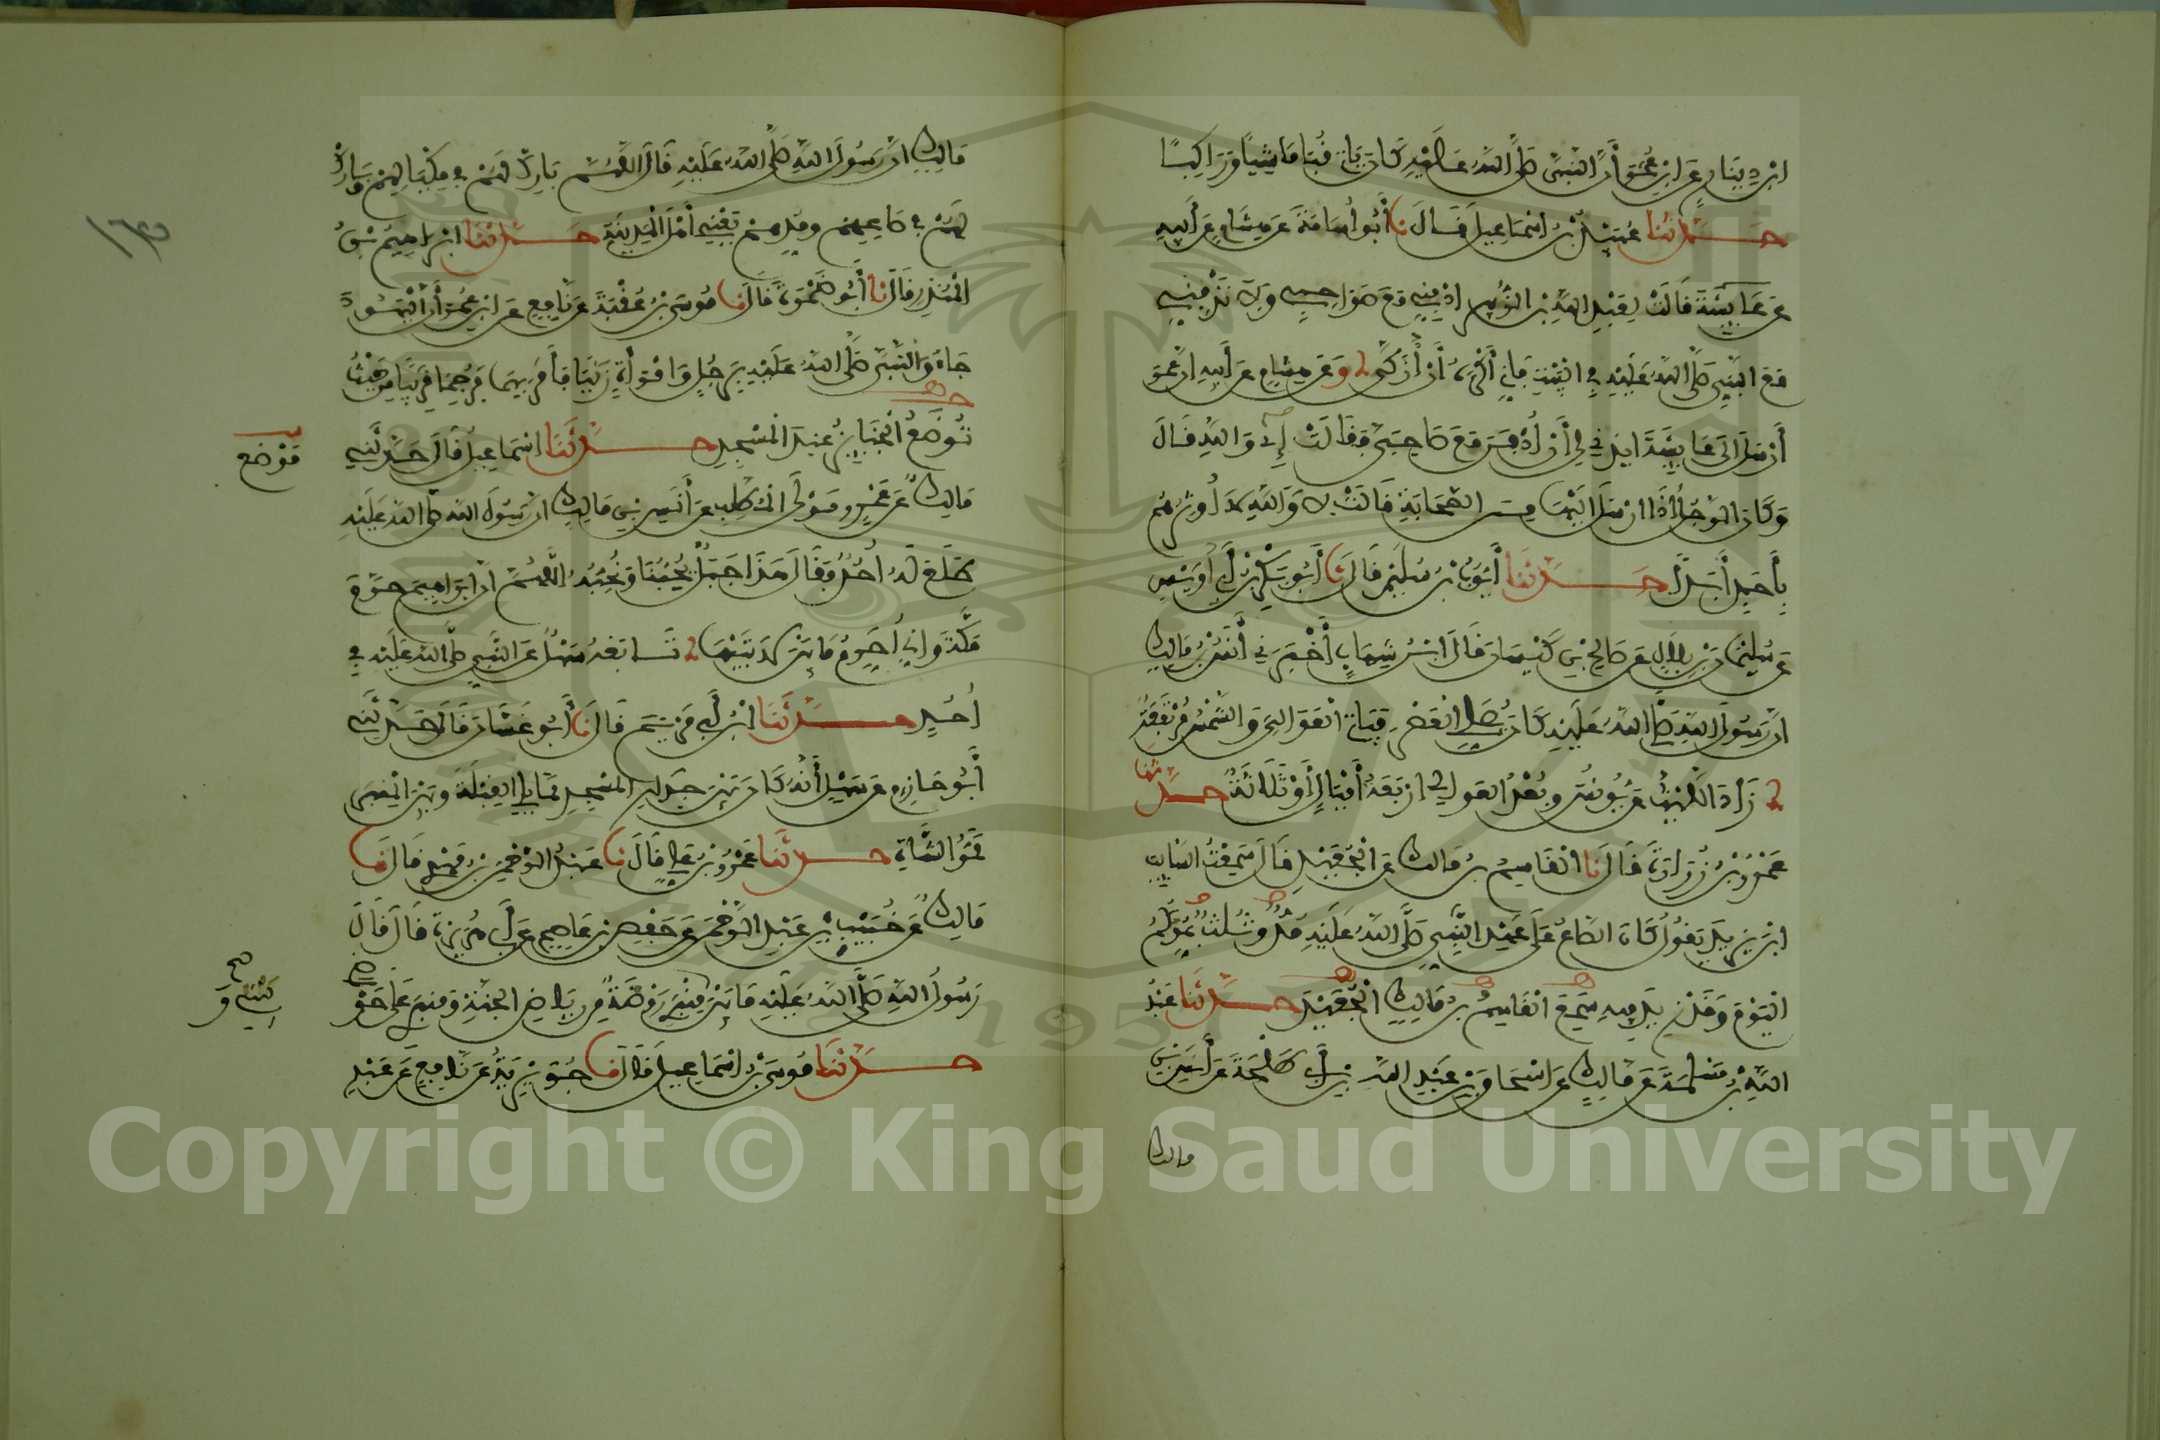 ابن دينار عن ابن عمر أن النبي صلى الله عليه كان يأتي قبا ماشيا وراكبا
حدثنا عبيد بن اسماعيل قال نا أبو أسامة عن هشام عن أبيه
عن عايشة قالت لعبد الله بن الزبير ادفني مع صواحبي ولا تدفني
مع النبي صلى الله عليه في البيت فإني أكره أن أزكى وعن هشام عن أبيه ان عمر
أرسل الى عايشة ايذني لي أن أدفن مع صاحبي فقالت إي والله قال
وكان الرجل إذا ارسل اليها من الصحابة قالت لا والله لا أوثرهم
بأحد أبدا حدثنا أيوب بن سليمن قال نا أبو بكر بن أبي أويس
عن سليمان بن بلال عن صالح بن كيسان قال ابن شهاب أخبرني أنس بن مالك
ان رسول الله صلى الله عليه كان يصلي العصر فياتي العوالي والشمس مرتفعة
زاد الليث عن يونس وبعد العوالي اربعة أميال أو ثلاثة حدثنا
عمرو بن زرارة قال نا القاسم بن مالك عن الجعيد قال سمعت السايب
ابن يزيد يقول كان الصاع على عهد النبي صلى الله عليه مد وثلث بمدكم
اليوم وقد زيد فيه سمع القاسم بن مالك الجعيد حدثنا عبد
الله بن مسلمة عن مالك عن اسحاق بن عبد الله بن أبي طلحة عن أنس بن
مالك
مالك ان رسول الله صلى الله عليه قال اللهم بارك لهم في مكيالهم وبارك
لهم في صاعهم ومدهم يعني أهل المدينة حدثنا ابراهيم بن
المنذر قال نا أبو ضمرة قال نا موسى بن عقبة عن نافع عن ابن عمر أن اليهود
جاءوا النبي صلى الله عليه برجل وامرأة زنيا فأمر بهما فرجما قريبا من حيث
توضع الجنايز عند المسجد حدثنا اسماعيل قال حدثني
موضع
مالك عن عمرو مولى المطلب عن أنس بن مالك ان رسول الله صلى الله عليه
طلع له أحد فقال هذا جبل يحبنا ونحبه اللهم ان ابراهيم حرم
مكة واني أحرم ما بين لابتيها تابعه سهل عن النبي صلى الله عليه في
أحد حدثنا ابن أبي مريم قال نا أبو غسان قال حدثني
أبو حازم عن سهل أنه كان بين جدار المسجد مما يلي القبلة وبين المنبر
ممر الشاة حدثنا عمرو بن علي قال نا عبد الرحمن بن مهدي قال نا
مالك عن خبيب بن عبد الرحمن عن حفص بن عاصم عن أبي هريرة قال قال
رسول الله صلى الله عليه ما بين منبري روضة من رياض الجنة ومنبري على حوضي
بيتي و
حدثنا موسى بن اسماعيل قال نا جويرية عن نافع عن عبد